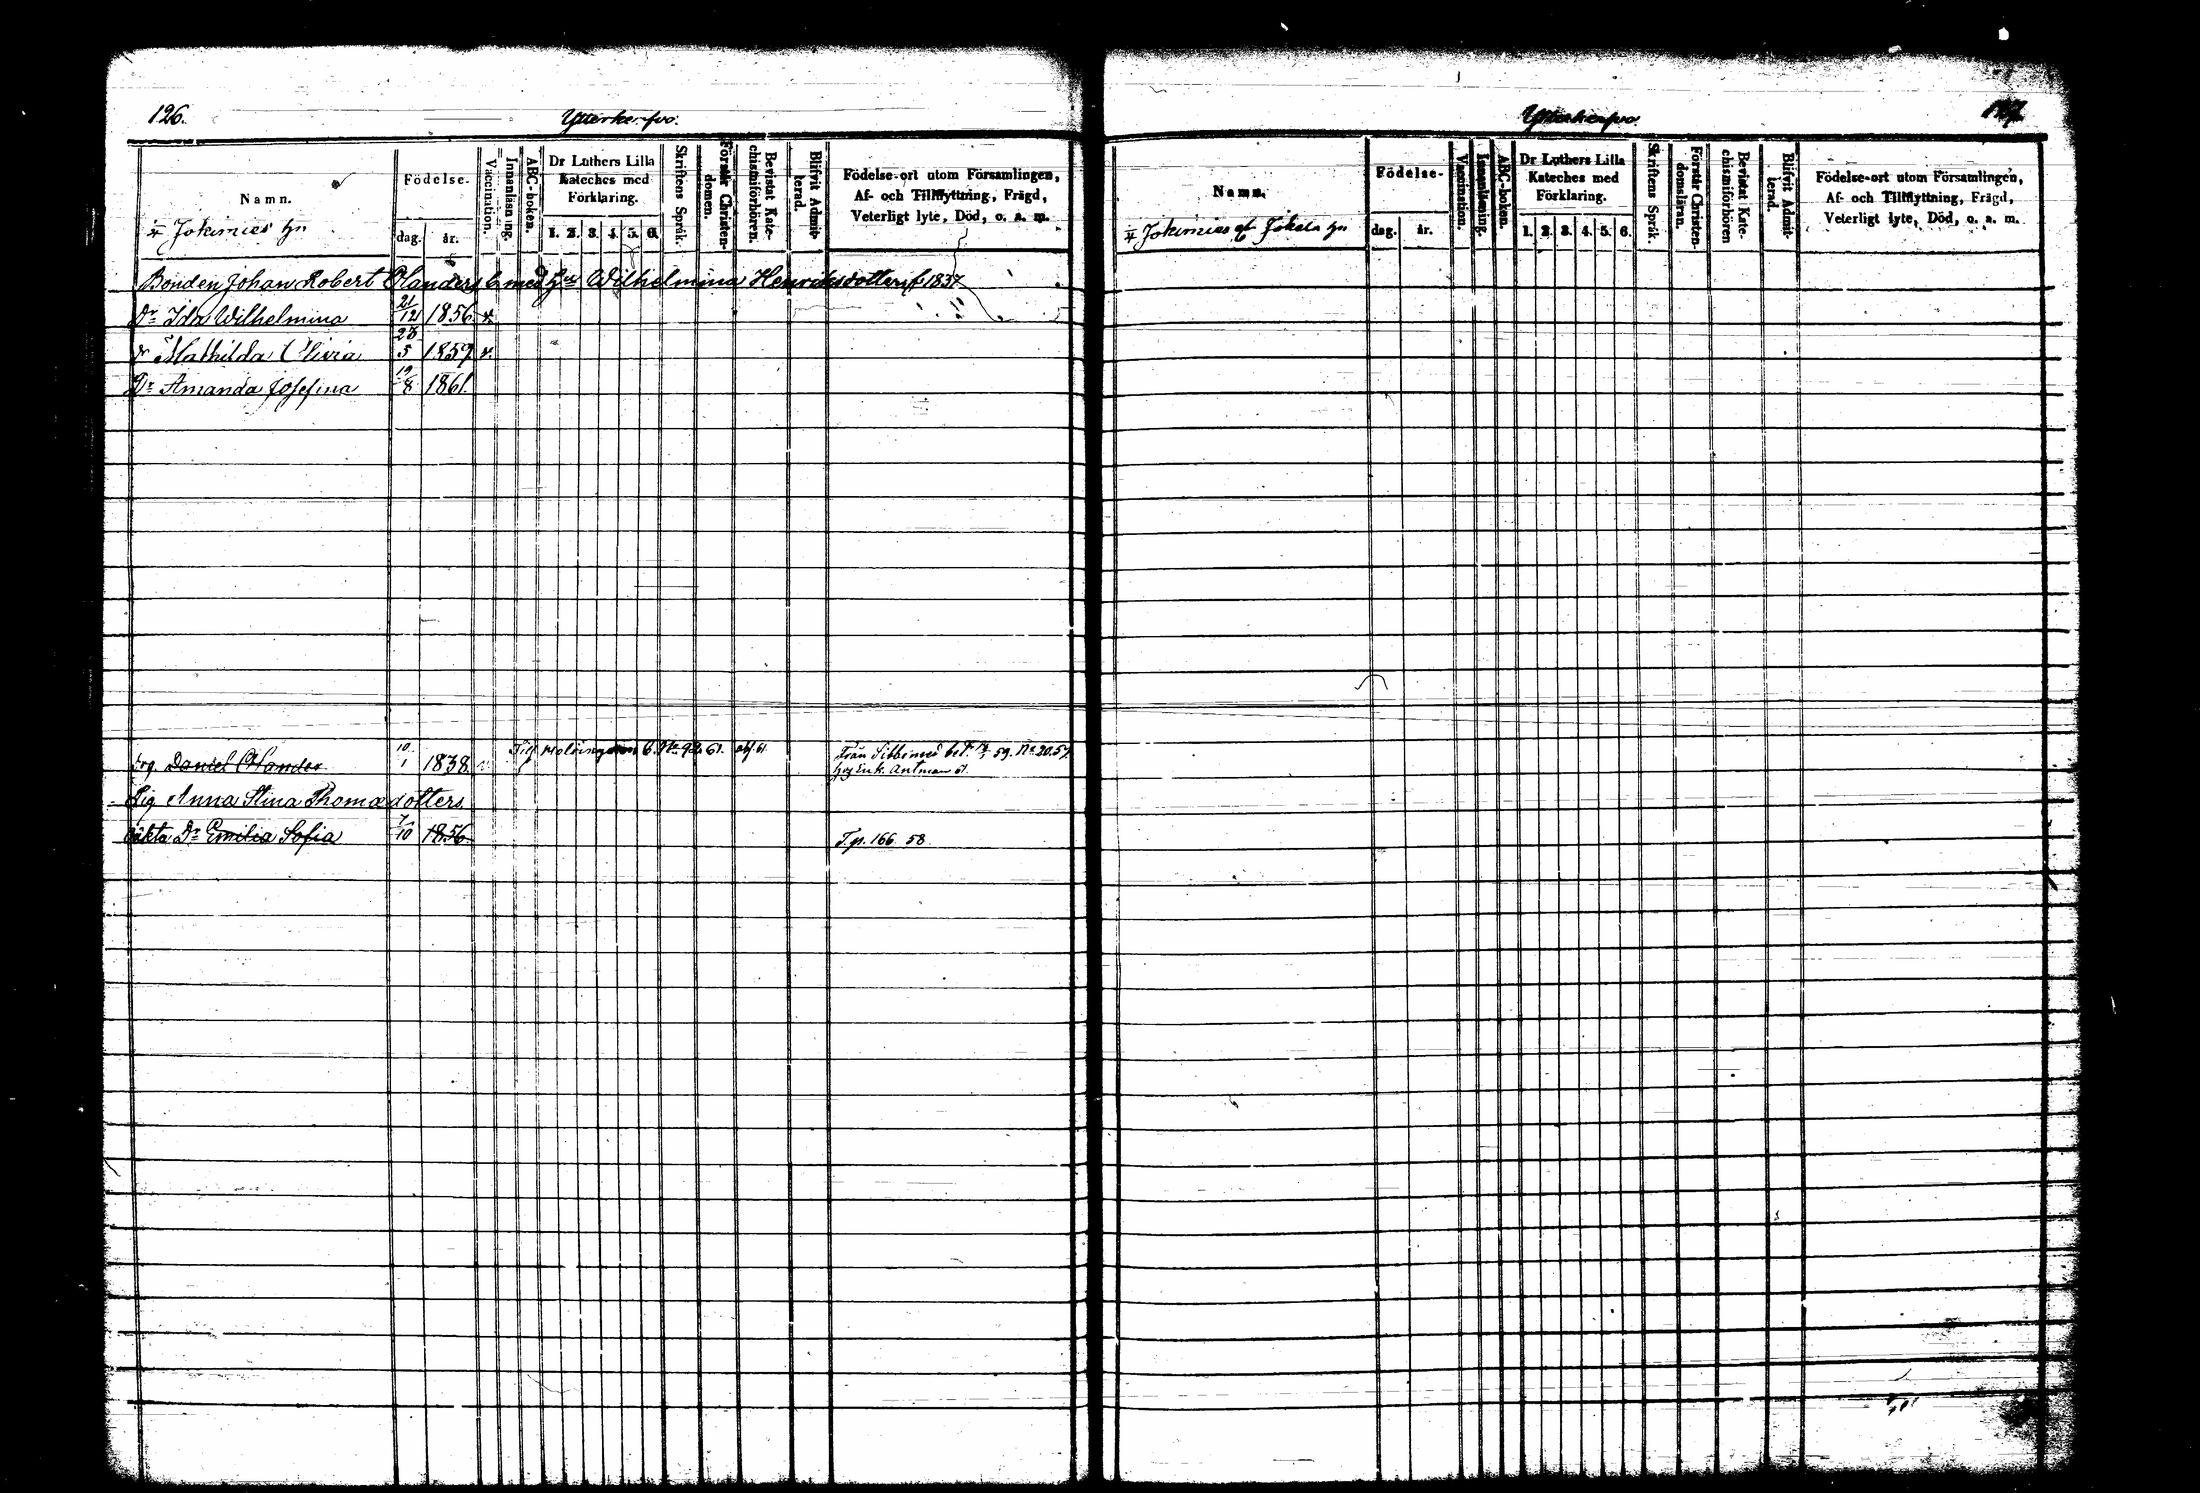 126.
Ytterkerfvo.
Namn.
Jokimies hn
Födelse-
dag. år.
Vaccination.
Innanläsning.
ABC-boken.
Dr Luthers Lilla
Kateches med
Förklaring.
1. 2. 3. 4. 5. 6.
Skriftens Språk.
Förstår Christen-
domen.
Bevistat Kate-
chismiförhören.
Blifvit Admit-
terad.
Födelse-ort utom Församlingen,
Af- och Tillflyttning, Frägd,
Veterligt lyte, Död, o. a. m.
Bonden Johan Robert Olanders b. med h. Wilhelmina Henriksdotter f. 1837
Dr Ida Wilhelmina 21/12 1856.
Dr Mathilda Olivia 28/5 1859
Dr Amanda Josefina 19/8 1861.
Drg. Daniel Olander 10/1 1838.
Från Sibbo 59. No 20. 57.
hos Enk. Antman 61.
Pig Anna Stina Thomædotters
oäkta Dr Emilia Sofia 7/10 1856
T. p. 166. 58.
Ytterkerfvo.
127.
Namn.
Jokimies et Jokela hn
Födelse-
dag. år.
Vaccination.
Innanläsning.
ABC-boken.
Dr Luthers Lilla
Kateches med
Förklaring.
1. 2. 3. 4. 5. 6.
Skriftens Språk.
Förstår Christen-
domsläran.
Bevistat Kate-
chismiförhören
Blifvit Admit-
terad.
Födelse-ort utom Församlingen,
Af- och Tillflyttning, Frägd,
Veterligt lyte, Död, o. a. m.